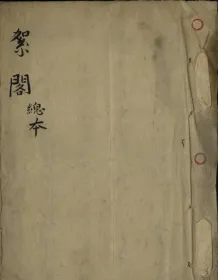 絮閣
總本